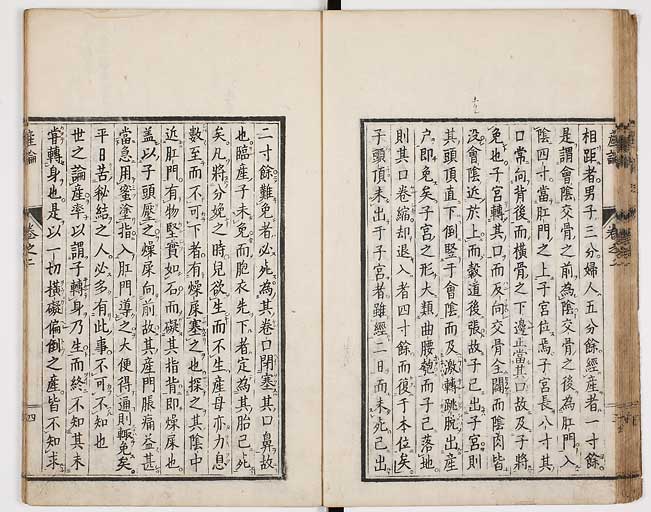 相距者男子三分婦人五分餘經産者一寸餘
是謂會陰交骨之前為陰交骨之後為肛門入
陰四寸當肛門之上子宮位焉子宮長八寸其
口常向背後而横骨之下邊正當其口故及子將
免也子宮轉其口而反向交骨全闢而陰肉皆
没會陰近於上而穀道後張故子已出子宮則
其頭頂直下倒竪于會陰而及激轉跳脱出産
户即免矣子宮之形大類曲腰匏而子已落地
則其口卷縮却退入者四寸餘而復于本位矣
子頭頂未出于子宮者雖經二日而未死已出
二寸餘難免者必死為其卷口閉塞其口鼻故
也臨産子未免而胞衣先下者定為其胎已死
矣凡將分娩之時兒欲生而不生産母亦力息
數至而不可下者有燥屎塞之也探之其陰中
近肛門有物堅實如石而礙其指背即燥屎也
盖以子頭壓之燥屎向前故其産門脹痛益甚
當急用蜜塗指入肛門導之大便得通則輙免矣
平日苦秘結之人必多有此事不可不知也
世之論産率以謂子轉身乃生而終不知其未
甞轉身也是以一切横礙偏倒之産皆不知求
産論
卷之二
四